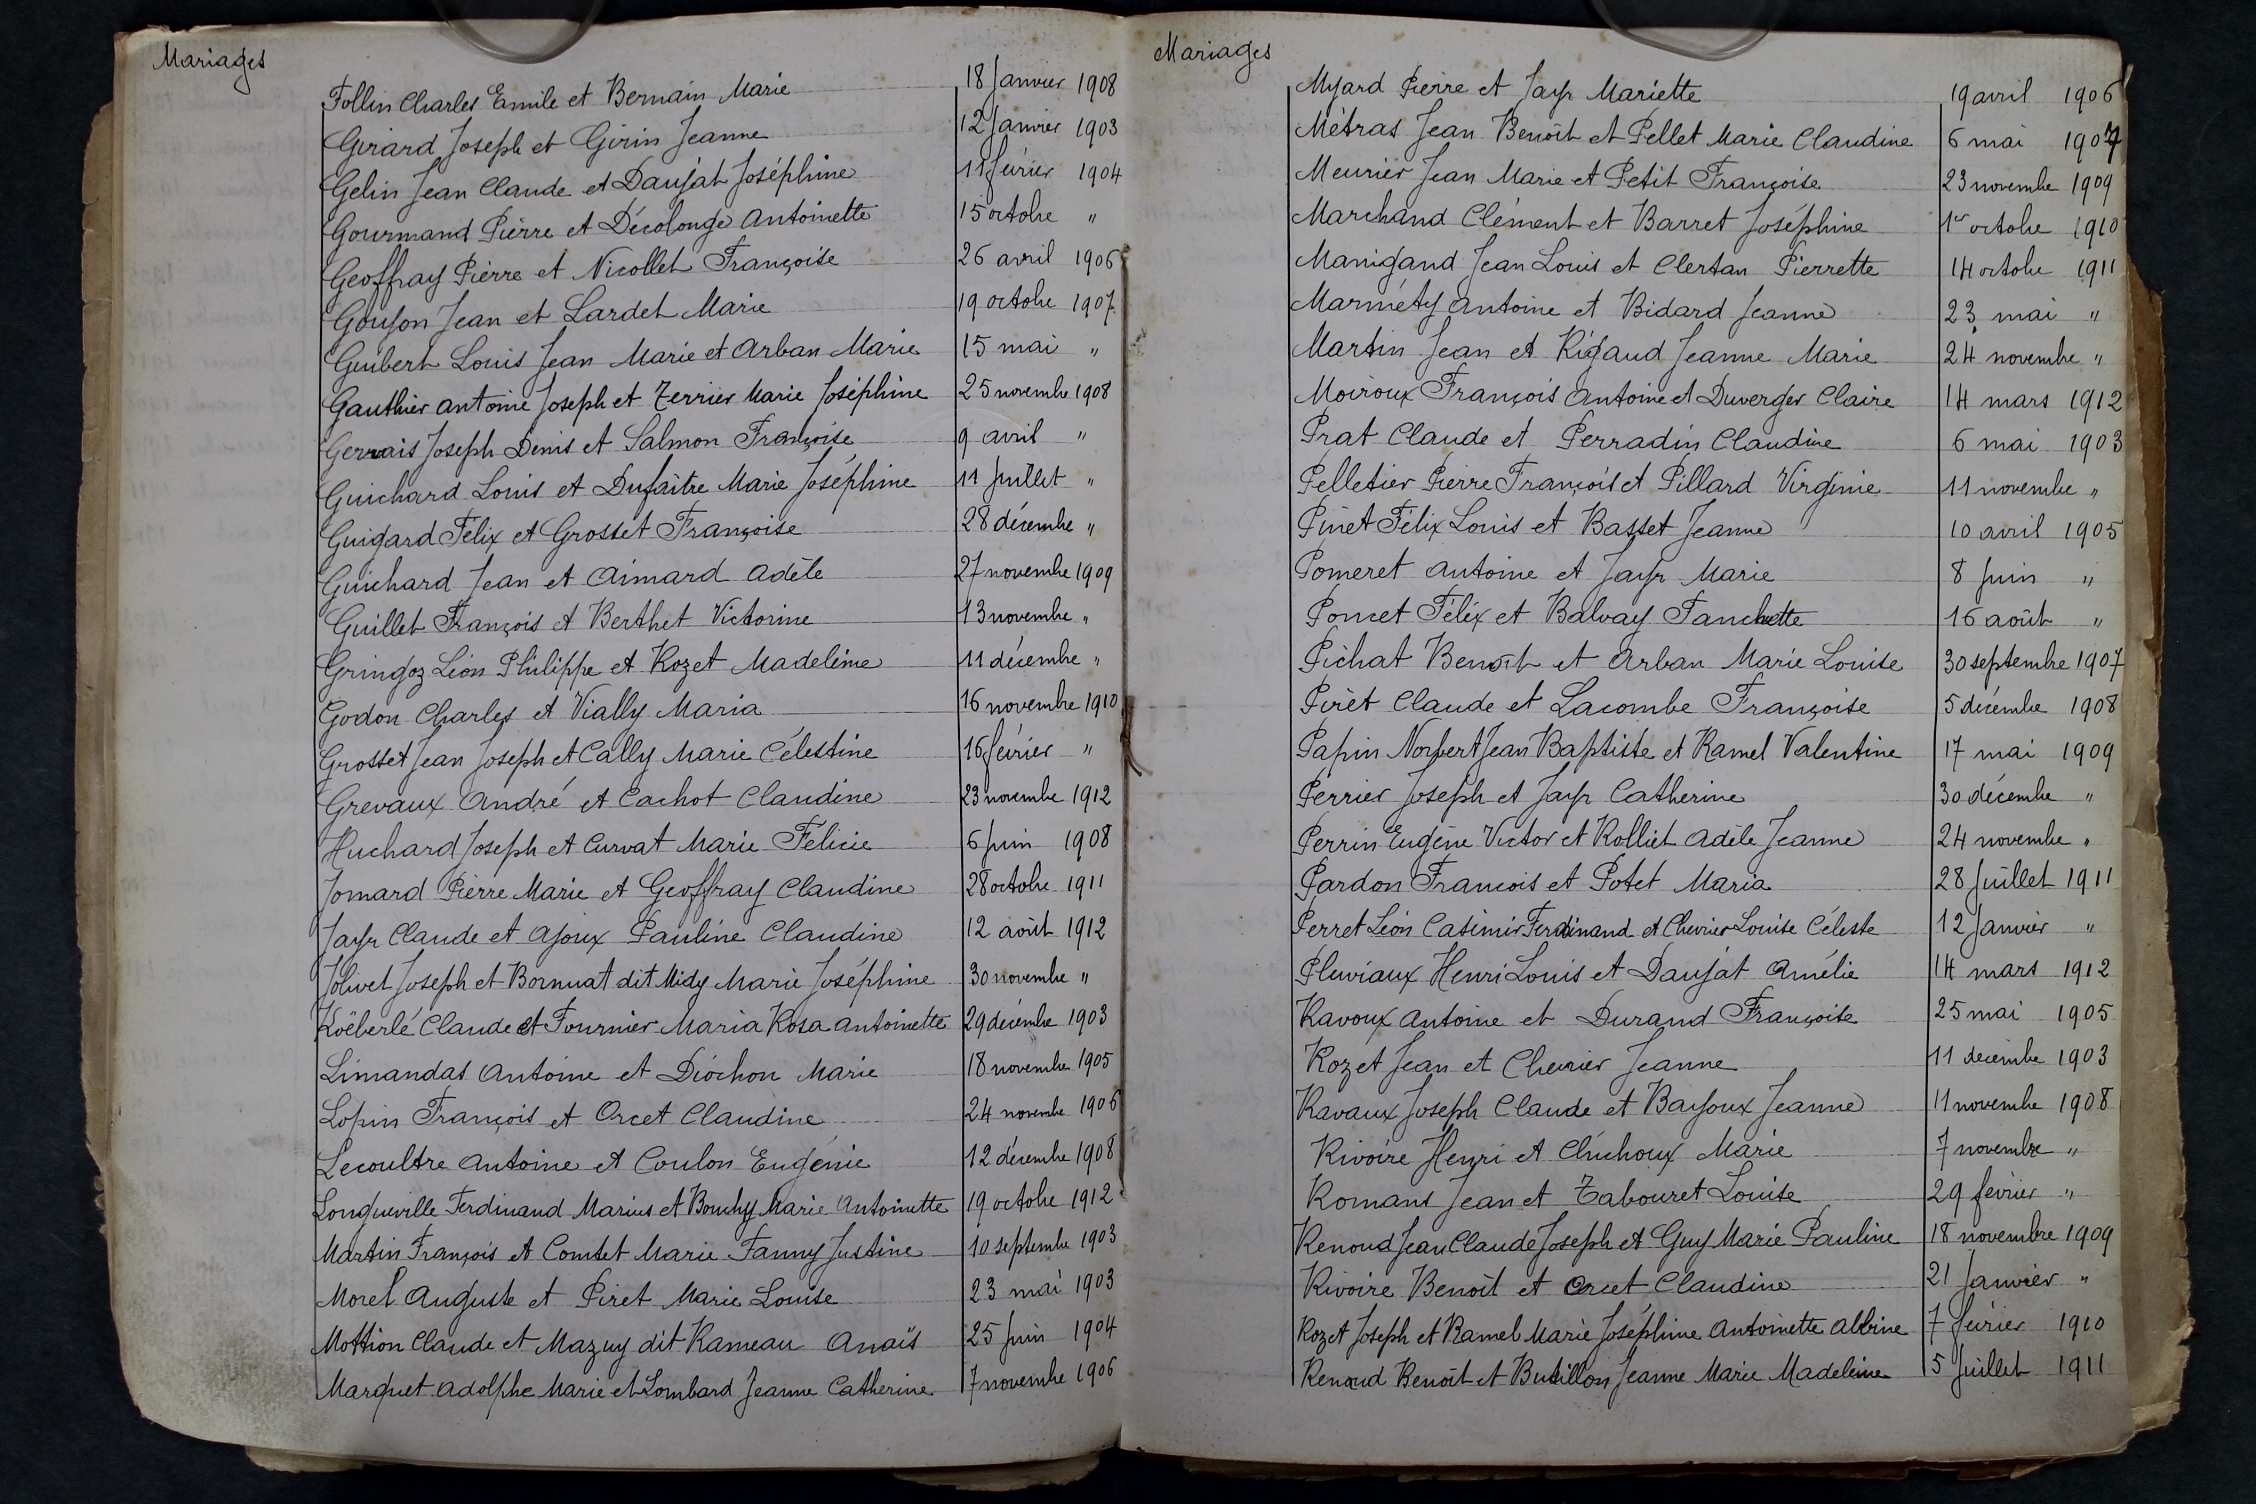 Mariages
Follin Charles Emile et Bernain Marie 18 Janvier 1908
Girard Joseph et Girin Jeanne 12 Janvier 1903
Gelin Jean Claude et Daujat Joséphine 11 février 1904
Gourmand Pierre et Décolonge Antoinette 15 octobre "
Geoffray Pierre et Nicollet Françoise 26 avril 1906
Goujon Jean et Lardet Marie 19 octobre 1907
Guibert Louis Jean Marie et Arban Marie 15 mai "
Gauthier Antoine Joseph et Terrier Marie Joséphine 25 novembre 1908
Gervais Joseph Denis et Salmon Françoise 9 avril "
Guichard Louis et Dufaitre Marie Joséphine 11 Juillet "
Guigard Félix et Grosset Françoise 28 décembre "
Guichard Jean et Aimard Adèle 27 novembre 1909
Guillet François et Berthet Victorine 13 novembre "
Gringoz Léon Philippe et Rozet Madeleine 11 décembre "
Godon Charles et Vially Maria 16 novembre 1910
Grosset Jean Joseph et Cally Marie Célestine 16 février "
Grevaux André et Cachot Claudine 23 novembre 1912
Huchard Joseph et Curvat Marie Félicie 6 Juin 1908
Jomard Pierre Marie et Geoffray Claudine 28 octobre 1911
Jayr Claude et Ajoux Pauline Claudine 12 août 1912
Jolivet Joseph et Bornuat dit Midy Marie Joséphine 30 novembre "
Koëberlé Claude et Fournier Maria Rosa Antoinette 29 décembre 1903
Limandas Antoine et Diochon Marie 18 novembre 1905
Lopin François et Orcet Claudine 24 novembre 1906
Lecoultre Antoine et Coulon Eugénie 12 décembre 1908
Longueville Ferdinand Marius et Bouchy Marie Antoinette 19 octobre 1912
Martin François et Comtet Marie Fanny Justine 10 septembre 1903
Morel Auguste et Piret Marie Louise 23 mai 1903
Mottion Claude et Mazuy dit Rameau Anaïs 25 Juin 1904
Marquet Adolphe Marie et Lombard Jeanne Catherine 7 novembre 1906
Mariages
Myard Pierre et Jayr Mariette 19 avril 1906
Métras Jean Benoît et Pellet Marie Claudine 6 mai 1907
Meunier Jean Marie et Petit Françoise 23 novembre 1909
Marchand Clément et Barret Joséphine 1er octobre 1910
Manigand Jean Louis et Clertan Pierrette 14 octobre 1911
Marméty Antoine et Bidard Jeanne 23 mai "
Martin Jean et Rigaud Jeanne Marie 24 novembre "
Moiroux François Antoine et Duverger Claire 14 mars 1912
Prat Claude et Perradin Claudine 6 mai 1903
Pelletier Pierre François et Pillard Virginie 11 novembre "
Pinet Félix Louis et Basset Jeanne 10 avril 1905
Pomeret Antoine et Jayr Marie 8 Juin "
Poncet Félix et Balvay Fanchette 16 août "
Pichat Benoît et Arban Marie Louise 30 septembre 1907
Piret Claude et Lacombe Françoise 5 décembre 1908
Papin Norbert Jean Baptiste et Ramel Valentine 17 mai 1909
Perrier Joseph et Jayr Catherine 30 décembre "
Perrin Eugène Victor et Rolliet Adèle Jeanne 24 novembre "
Pardon Francois et Potet Maria 28 Juillet 1911
Perret Léon Casimir Ferdinand et Chevrier Louise Céleste 12 Janvier "
Pluviaux Henri Louis et Daujat Amélie 14 mars 1912
Ravoux Antoine et Durand Françoise 25 mai 1905
Rozet Jean et Chevrier Jeanne 11 décembre 1903
Ravaux Joseph Claude et Bajoux Jeanne 11 novembre 1908
Rivoire Henri et Cluchoux Marie 7 novembre "
Romans Jean et Tabouret Louise 29 février "
Renoud Jean Claude Joseph et Guy Marie Pauline 18 novembre 1909
Rivoire Benoît et Orcet Claudine 21 Janvier "
Rozet Joseph et Ramel Marie Joséphine Antoinette Albine 7 février 1910
Renoud Benoît et Butillon Jeanne Marie Madeleine 5 Juillet 1911